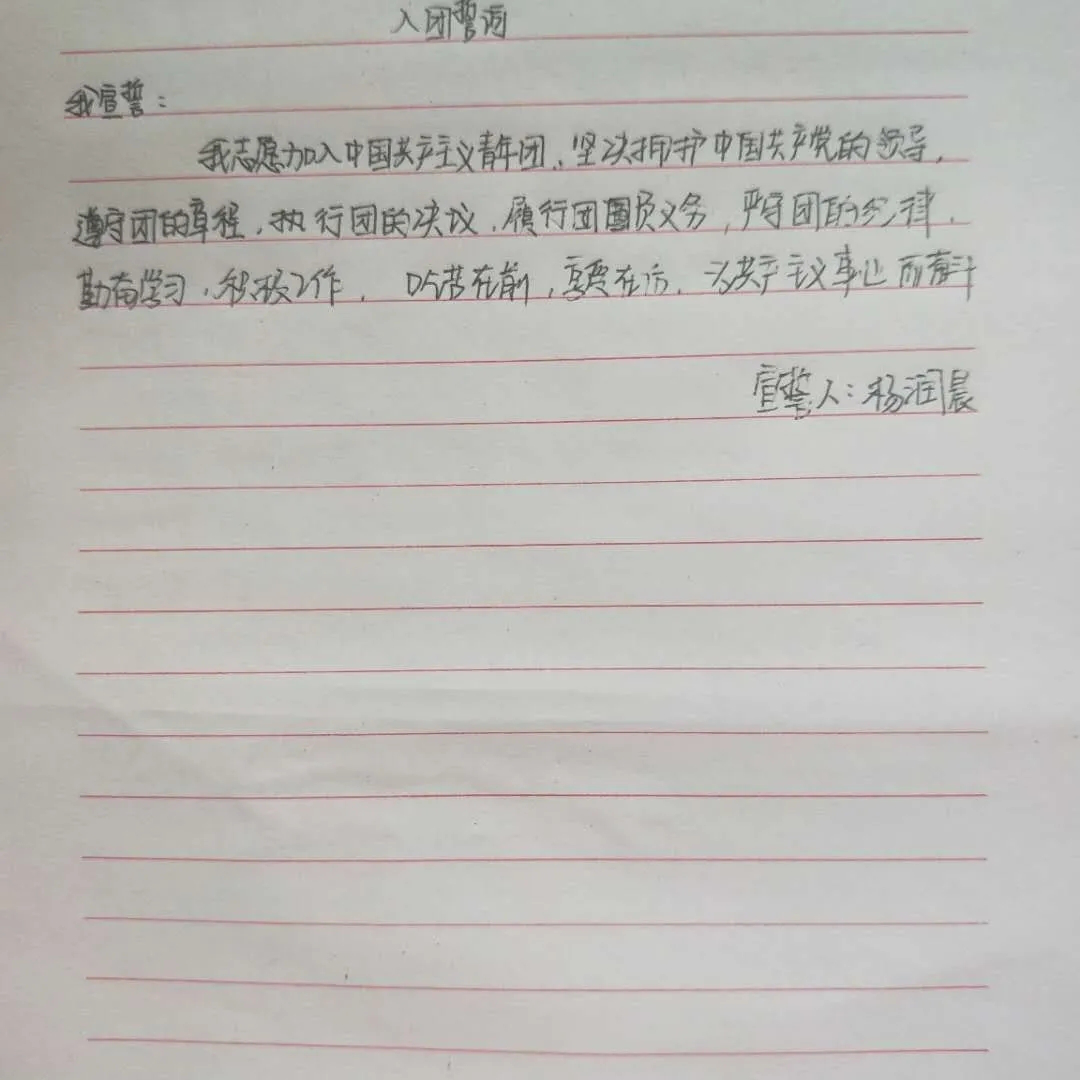 入团誓词
我宣誓：
我志愿加入中国共产主义青年团，坚决拥护中国共产党的领导，
遵守团的章程，执行团的决议，履行团员义务，严守团的纪律，
勤奋学习，积极工作，吃苦在前，享受在后，为共产主义事业而奋斗
宣誓人：杨润晨